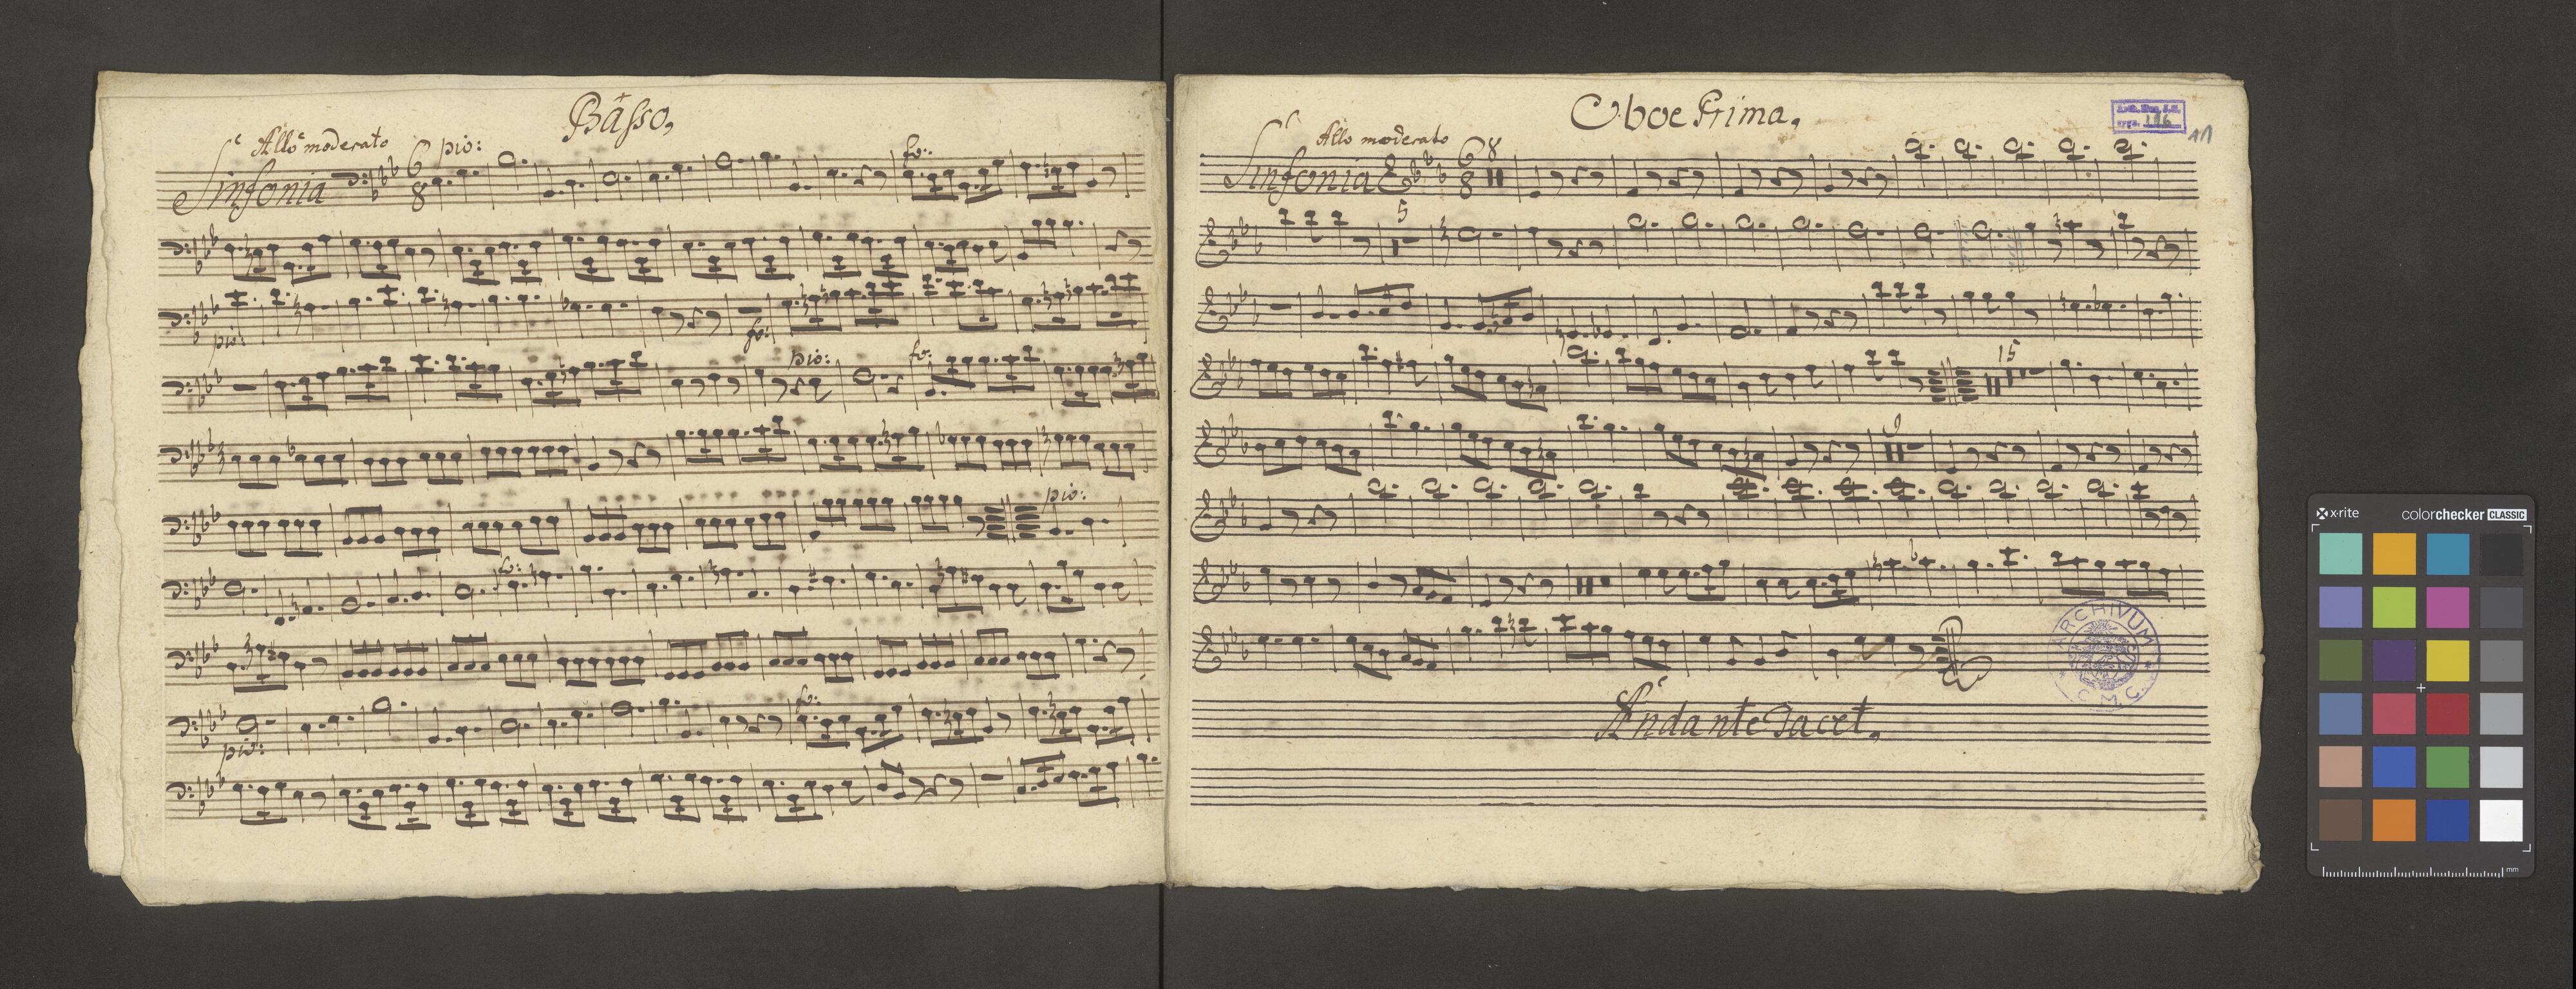 Basso,
Sinfonia Allo moderato 6 8 pio: fo:
pio: fo:
pio: fo:
pio:
fo:
pio: fo:
Oboe Prima,
Sinfonia Allo moderato 6 8 8
5
15
9
Andante Tacet,
186
ARCHIVUM
C. M. C.
x-rite colorchecker CLASSIC
mm